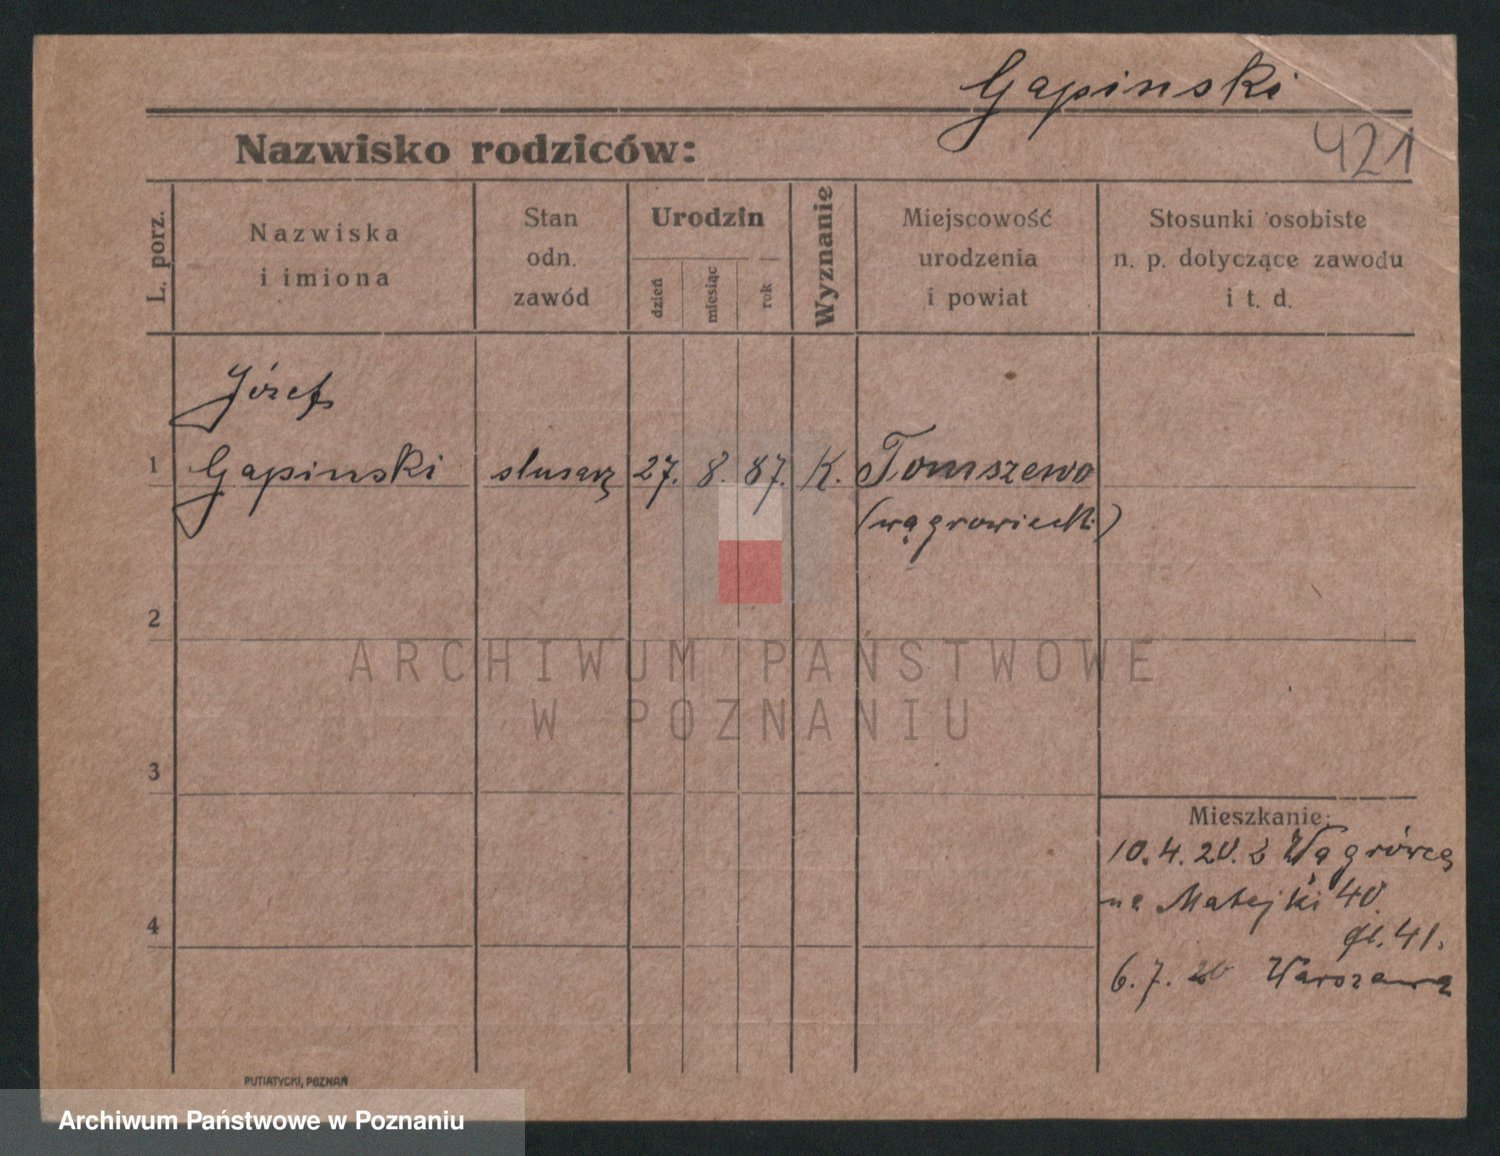 Gapinski
421
Nazwisko rodziców:
L. porz.
Nazwiska
i imiona
Stan
odn.
zawód
Urodzin
dzień
miesiąc
rok
Wyznanie
Miejscowość
urodzenia
i powiat
Stosunki osobiste
n. p. dotyczące zawodu
i t. d.
Józef
1 Gapinski slusarz 27. 8. 87. K. Tomszewo
(wągrowiecki)
2
3
4
Mieszkanie:
10.4.20. z Wągrówca
na Matejki 40
gł. 41.
6.7.20 Warszawa
PUTIATYCKI, POZNAŃ
ARCHIWUM PAŃSTWOWE
W POZNANIU
Archiwum Państwowe w Poznaniu